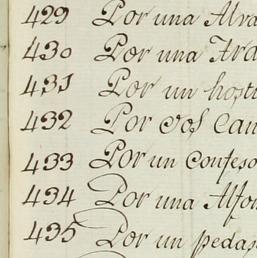 429 Por una Alva
430 Por una Ara
431 Por un hosti
432 Por dos Can
433 Por un Confeso
434 Por una Alfom
435 Por un pedas